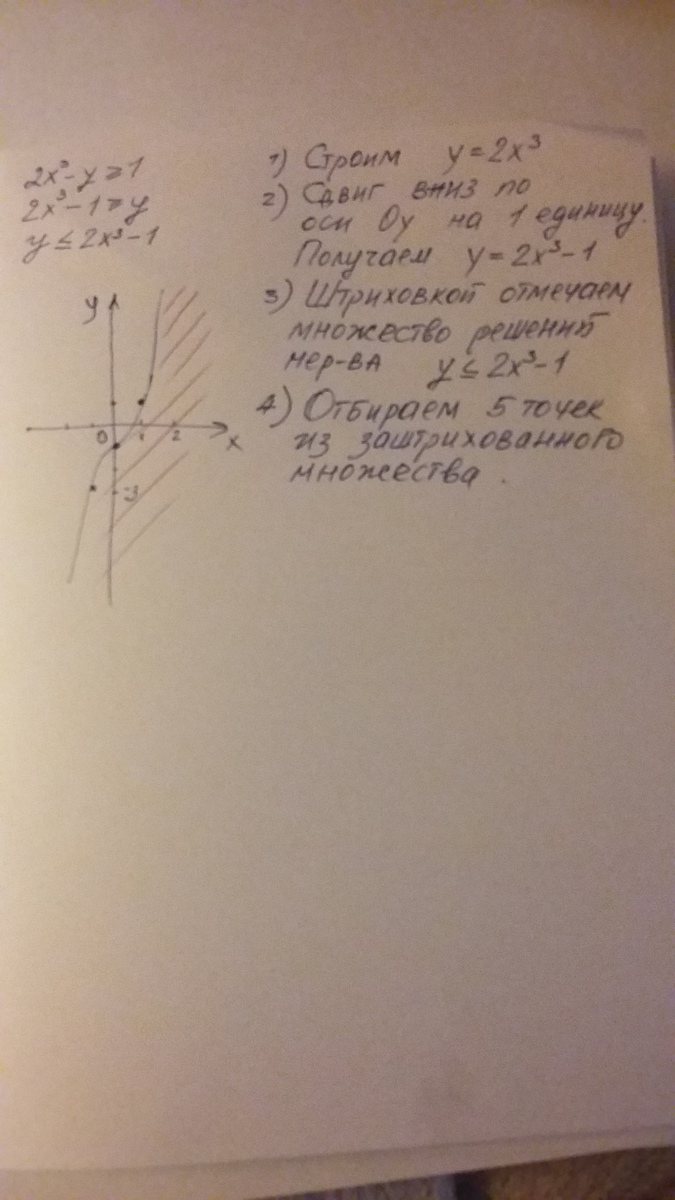 2x³-y≥1
2x³-1≥y
y≤2x³-1
y
0 1 2
x
-3
1) Строим y=2x³
2) Сдвиг вниз по
оси Oy на 1 единицу.
Получаем y=2x³-1
3) Штриховкой отмечаем
множество решений
нер-ва y≤2x³-1
4) Отбираем 5 точек
из заштрихованного
множества.